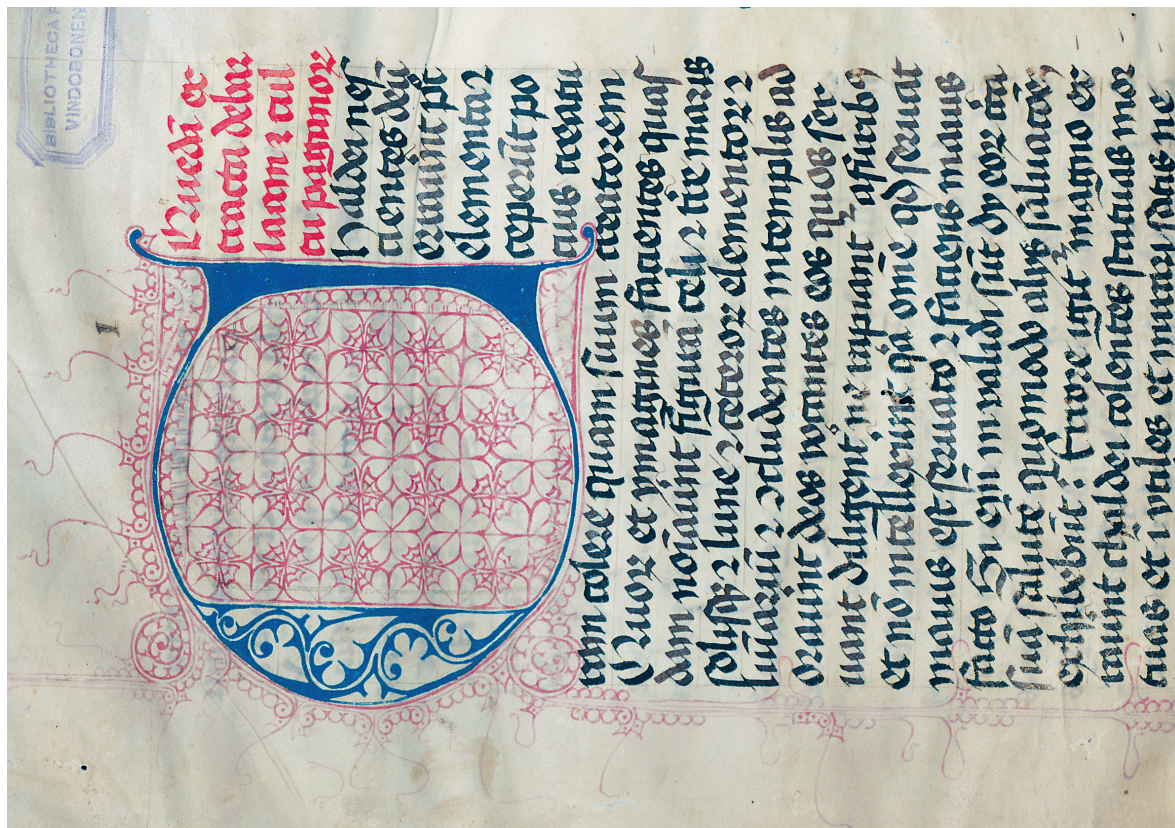 BIBLIOTHECA P
VINDOBONEN
Quedā ex
tracta debar
laam ⁊ cul
tu paganoꝝ
haldei nes
cientes deū
erraūint pꝰ
elementa ⁊
ceperūt po
cius creatu
ram colere quam suum creatorem
Quoꝝ et ymagines facientes quas
dam noīauīnt figurā celi ⁊ tre maris
solisqꝫ ⁊ lune ⁊ ceteroꝝ elementoꝝ ⁊
lūīariū ⁊ īcludentes in templis ad
orauīnt deos vocantes eos quos ser
uant diligent̄ ne rapiant᷑ a furibꝰ
et nō intellexīnt q̇a om̄e qd̄ seruat
maius est seruato ⁊ faciens maius
facto Si em̄ inualidi sūt dy eoꝝ
suā salutē quomodo alijs saluacōeꝫ
exhibebūt: Errore igit᷑ magno er
rauīnt chaldei colentes statuas mor
tuas et īvtiles et